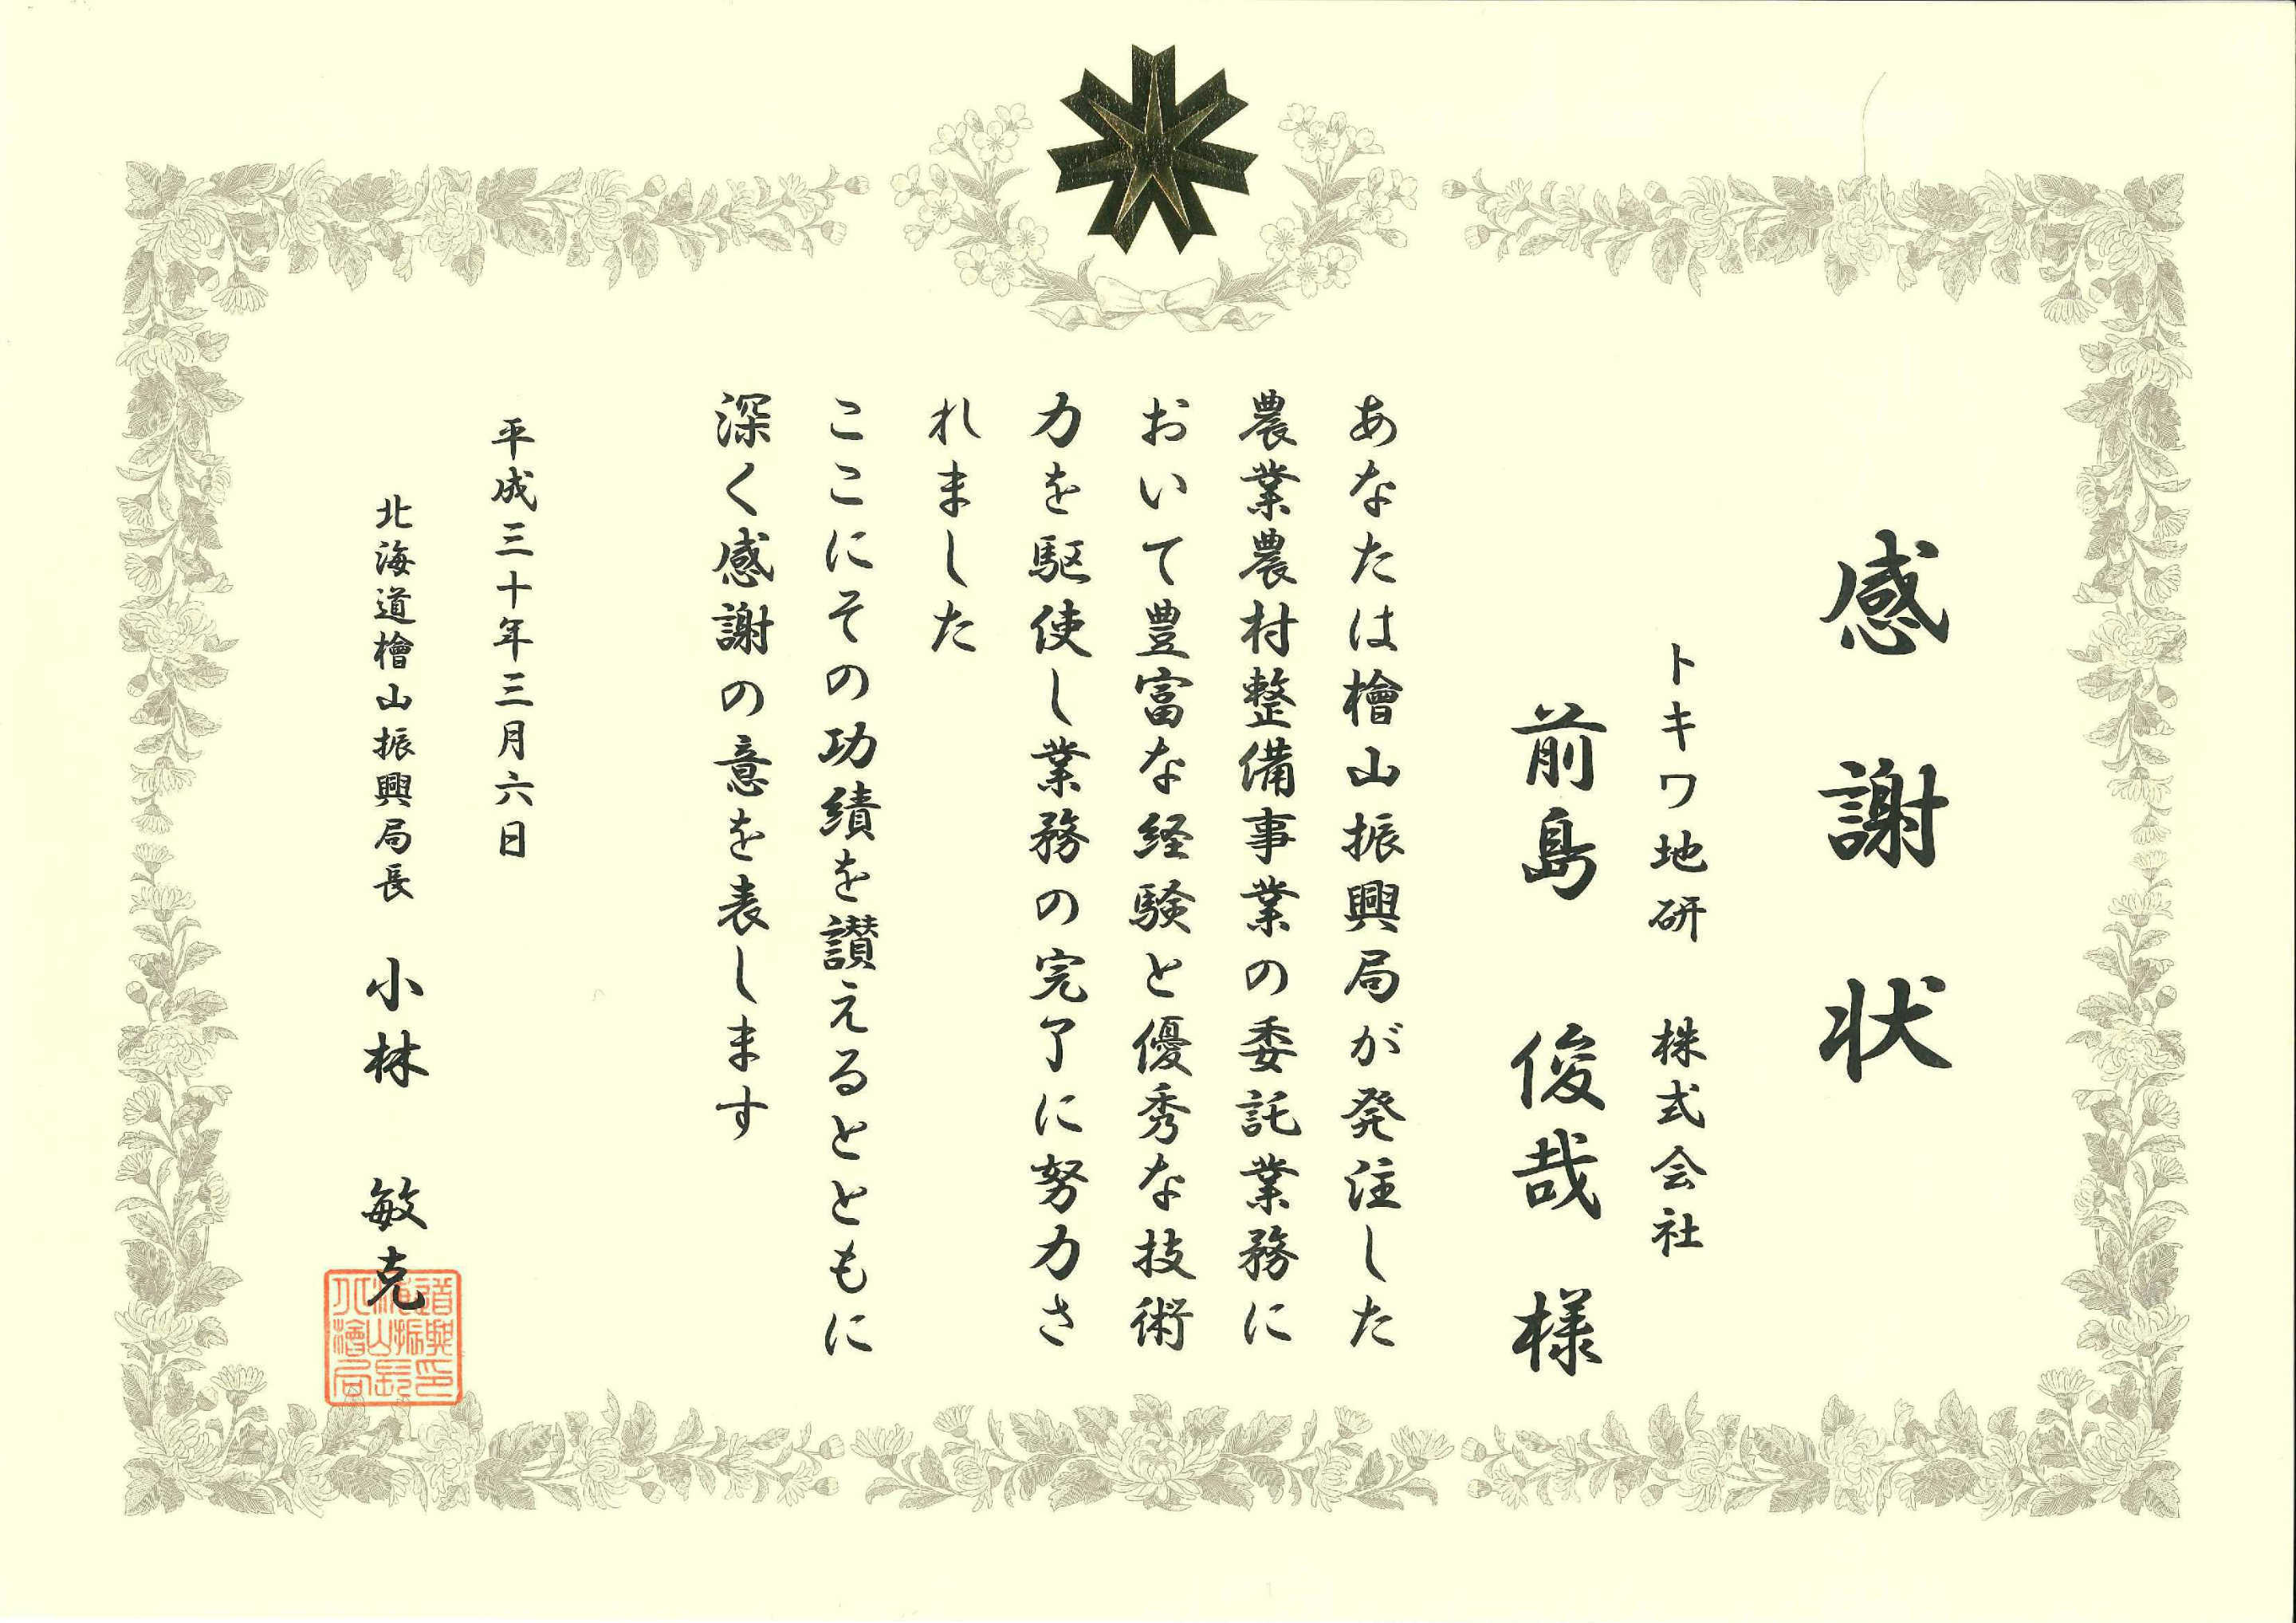 感謝状
トキワ地研 株式会社
前島 俊哉 様
あなたは檜山振興局が発注した
農業農村整備事業の委託業務に
おいて豊富な経験と優秀な技術
力を駆使し業務の完了に努力さ
れました
ここにその功績を讃えるとともに
深く感謝の意を表します
平成三十年三月六日
北海道檜山振興局長 小林 敏克
道海北
興振山檜
印長局